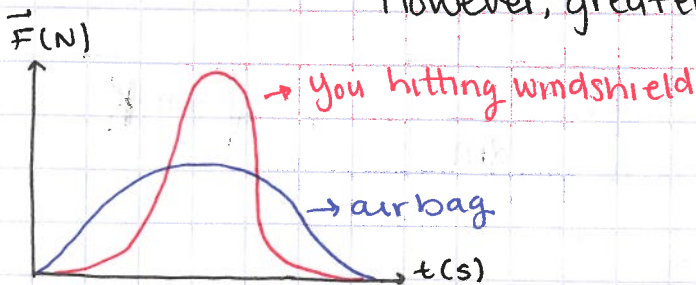 However, greater
F⃗(N)
→ you hitting windshield
→ airbag
t(s)